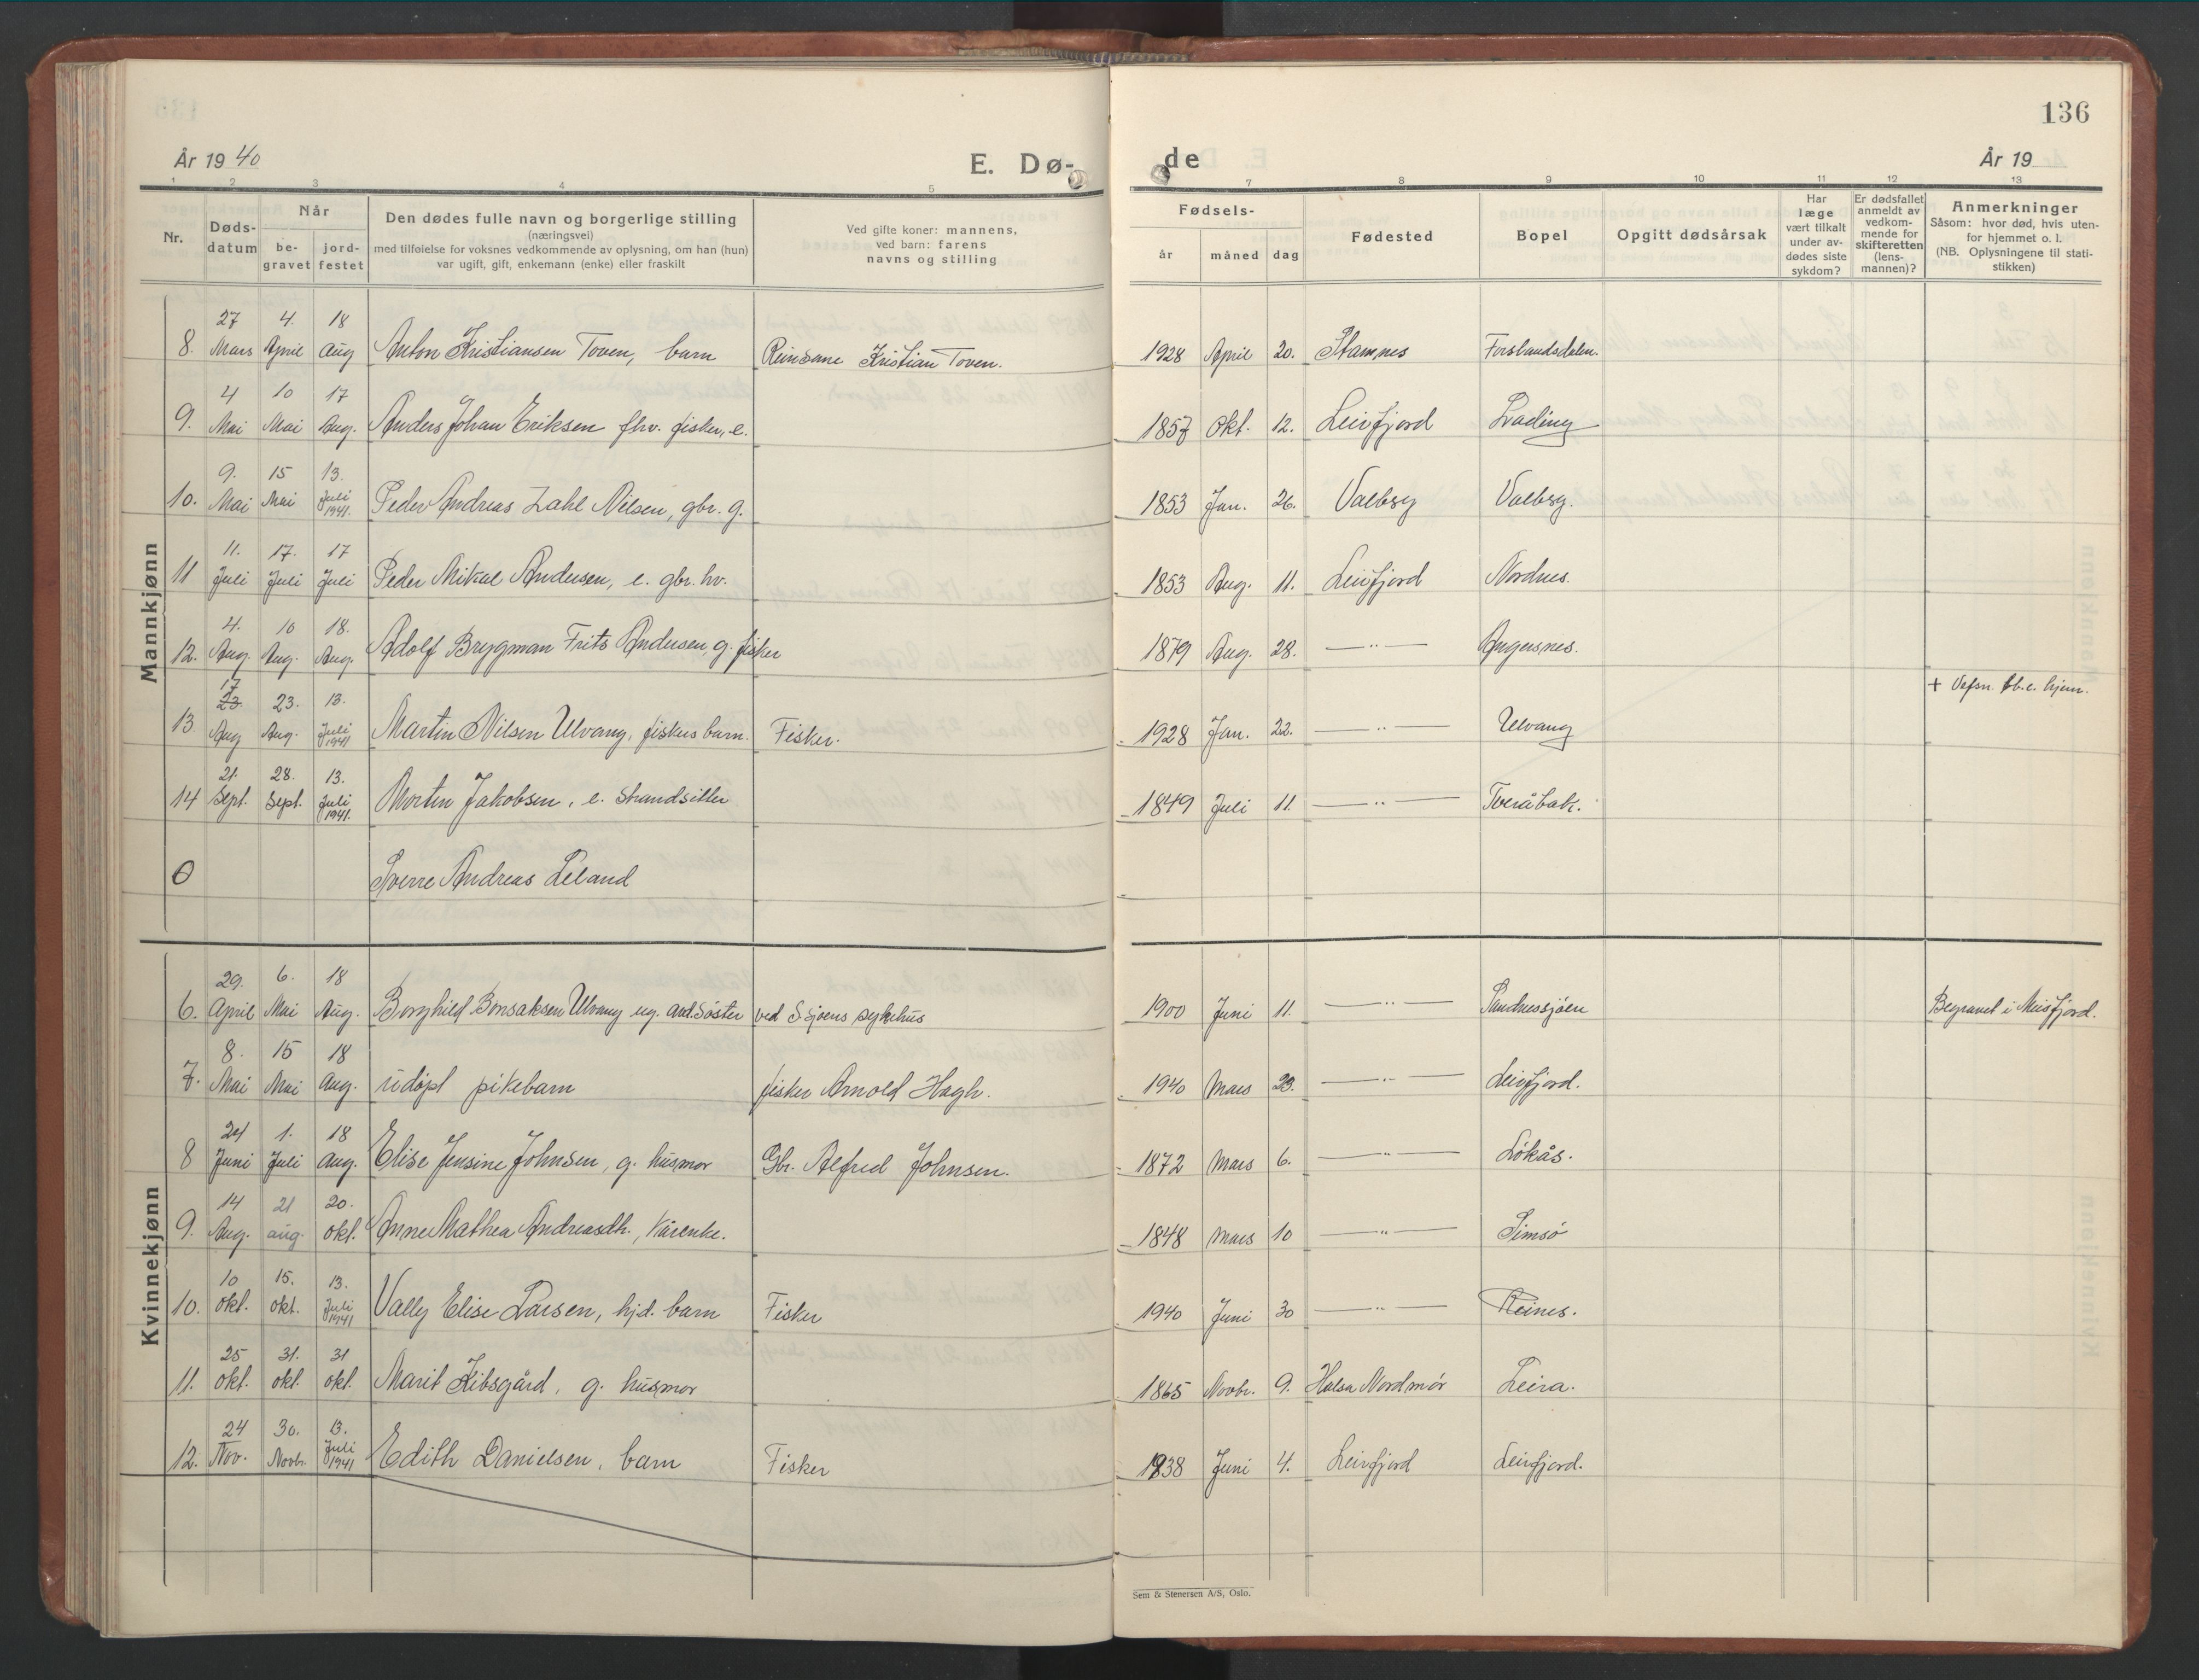 136
År 19 40
E. Dø-
de
År 19
1 2 3 4 5 7 8 9 10 11 12 13
Nr.
Døds-
datum
Når
be-
gravet
jord-
festet
Den dødes fulle navn og borgerlige stilling
(næringsvei)
med tilføielse for voksnes vedkommende av oplysning, om han (hun)
var ugift, gift, enkemann (enke) eller fraskilt
Ved gifte koner: mannens,
ved barn: farens
navns og stilling
Fødsels-
år måned dag
Fødested
Bopel
Opgitt dødsårsak
Har
læge
vært tilkalt
under av-
dødes siste
sykdom?
Er dødsfallet
anmeldt av
vedkom-
mende for
skifteretten
(lens-
mannen)?
Anmerkninger
Såsom: hvor død, hvis uten-
for hjemmet o. l.
(NB. Oplysningene til stati-
stikken)
Mannkjønn
27 4. 18
8. Mars April Aug Anton Kristiansen Toven, barn Reinsame Kristian Toven. 1928 April 20. Stamnes Forslandsdalen.
4 10 17
9. Mai Mai Aug. Anders Johan Eriksen fhv. fisker, e. 1857 Okt. 12. Leirfjord Leading
9. 15 13.
10. Mai Mai Juli 1941. Peder Andreas Zahl Nilsen, gbr. g. 1853 Jan. 26. Valberg Valberg.
11. 17. 17
11 Juli Juli Juli Peder Mikal Andersen, e. gbr. hv. 1853 Aug. 11. Leirfjord Nordnes.
4. 10 18.
12. Aug. Aug. Aug. Adolf Brygman Frits Andersen, g. fisker 1879 Aug. 28. —"— Angersnes.
17
23 23. 13.
13. Aug Aug. Juli 1941 Martin Nilsen Ulvang, fiskers barn. Fisker. 1928 Jan. 22. —"— Ulvang
+ Vefsn. tb.c. hjem.
21. 28. 13.
14 Sept. Sept. Juli 1941. Mortin Jakobsen, e. strandsitter 1849 Juli 11. —"— Tveråbak.
0 Sverre Andreas Leland
Kvinnekjønn
29. 6. 18
6. April Mai Aug. Borghild Bonsaksen Ulvang ug. avd. søster ved S.sjøens sykehus 1900 Juni 11. —"— Sandnessjøen Begravet i Meisfjord.
8. 15 18
7. Mai Mai Aug. udøpt pikebarn fisker Arnold Hagh. 1940 Mars 23. —"— Leirfjord.
24 1. 18
8 Juni Juli Aug. Elise Jensine Johnsen, g. husmor Gbr. Alfred Johnsen. 1872 Mars 6. —"— Løkås.
14 21 20.
9. Aug. aug. okt. Anne Mathea Andreasdh., kårenke. 1848 Mars 10 —"— Simsø
10 15. 13.
10. okt. okt. Juli 1941 Vally Elise Larsen, hjd. barn Fisker 1940 Juni 30 —"— Reines.
25 31. 31
11. okt. okt. okt. Marit Kibsgård, g. husmor 1865 Novbr. 9. Halsa Nordmør Leira.
24 30. 13.
12. Nov. Novbr. Juli 1941 Edith Danielsen, barn Fisker 1938 Juni 4. Leirfjord Leirfjord.
Sem & Stenersen A/S, Oslo.